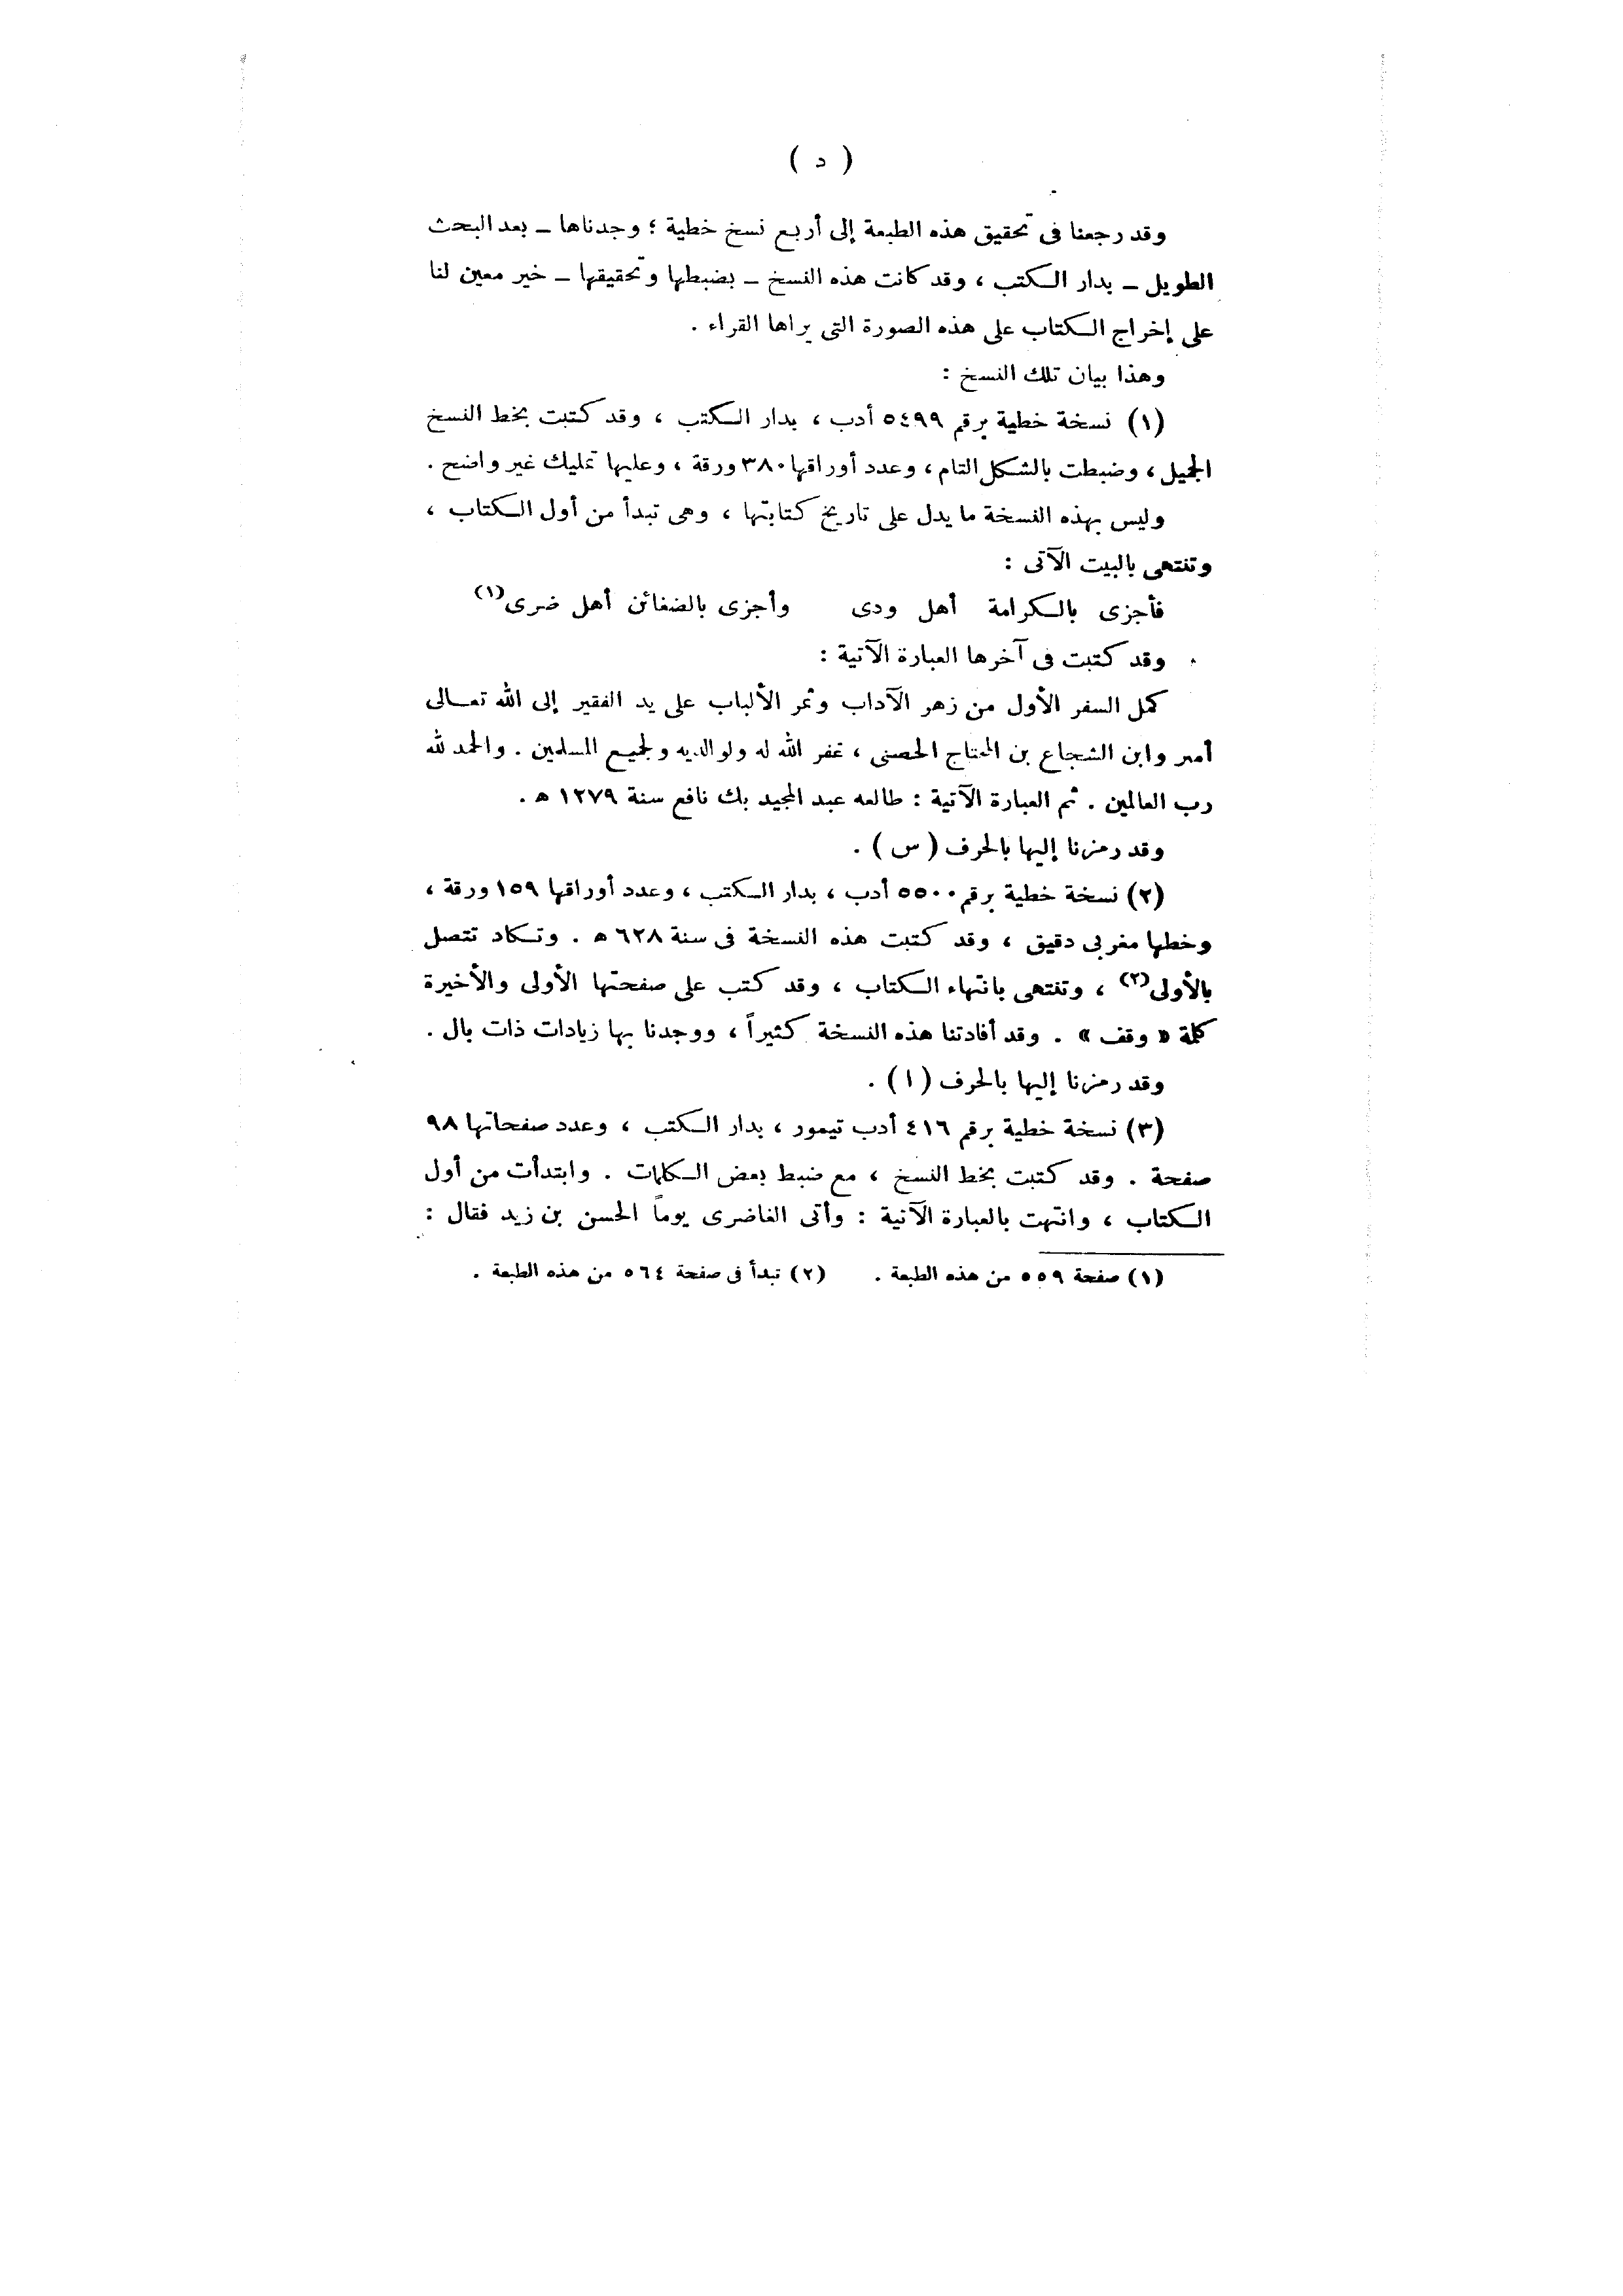 ( د )
وقد رجعنا فى تحقيق هذه الطبعة إلى أربع نسخ خطية ؛ وجدناها – بعد البحث
الطويل – بدار الكتب ، وقد كانت هذه النسخ – بضبطها وتحقيقها – خير معين لنا
على إخراج الكتاب على هذه الصورة التى يراها القراء .
وهذا بيان تلك النسخ :
(١) نسخة خطية برقم ٥٤٩٩ أدب ، بدار الكتب ، وقد كتبت بخط النسخ
الجميل ، وضبطت بالشكل التام ، وعدد أوراقها ٣٨٠ ورقة ، وعليها تمليك غير واضح .
وليس بهذه النسخة ما يدل على تاريخ كتابتها ، وهى تبدأ من أول الكتاب ،
وتنتهى بالبيت الآتى :
فأجزى بالكرامة أهل ودى وأجزى بالضغائن أهل ضرى(١)
وقد كتبت فى آخرها العبارة الآتية :
كمل السفر الأول من زهر الآداب وثمر الألباب على يد الفقير إلى الله تعالى
وابن الشجاع بن الحصنى ، غفر الله له ولوالديه ولجميع المسلمين . والحمد لله
رب العالمين . ثم العبارة الآتية : طالعه عبد المجيد بك نافع سنة ١٢٧٩ ه .
وقد رمزنا إليها بالحرف ( س ) .
(٢) نسخة خطية برقم ٥٥٠٠ أدب ، بدار الكتب ، وعدد أوراقها ١٥٩ ورقة ،
وخطها مغربى دقيق ، وقد كتبت هذه النسخة فى سنة ٦٢٨ ه . وتكاد تتصل
بالأولى(٢) ، وتنتهى بانتهاء الكتاب ، وقد كتب على صفحتها الأولى والأخيرة
كلمة « وقف » . وقد أفادتنا هذه النسخة كثيراً ، ووجدنا بها زيادات ذات بال .
وقد رمزنا إليها بالحرف ( ا ) .
(٣) نسخة خطية برقم ٤١٦ أدب تيمور ، بدار الكتب ، وعدد صفحاتها ٩٨
صفحة . وقد كتبت بخط النسخ ، مع ضبط بعض الكلمات . وابتدأت من أول
الكتاب ، وانتهت بالعبارة الآتية : وأتى الغاضرى يوماً الحسن بن زيد فقال :
(١) صفحة ٥٥٩ من هذه الطبعة . (٢) تبدأ فى صفحة ٥٦٤ من هذه الطبعة .